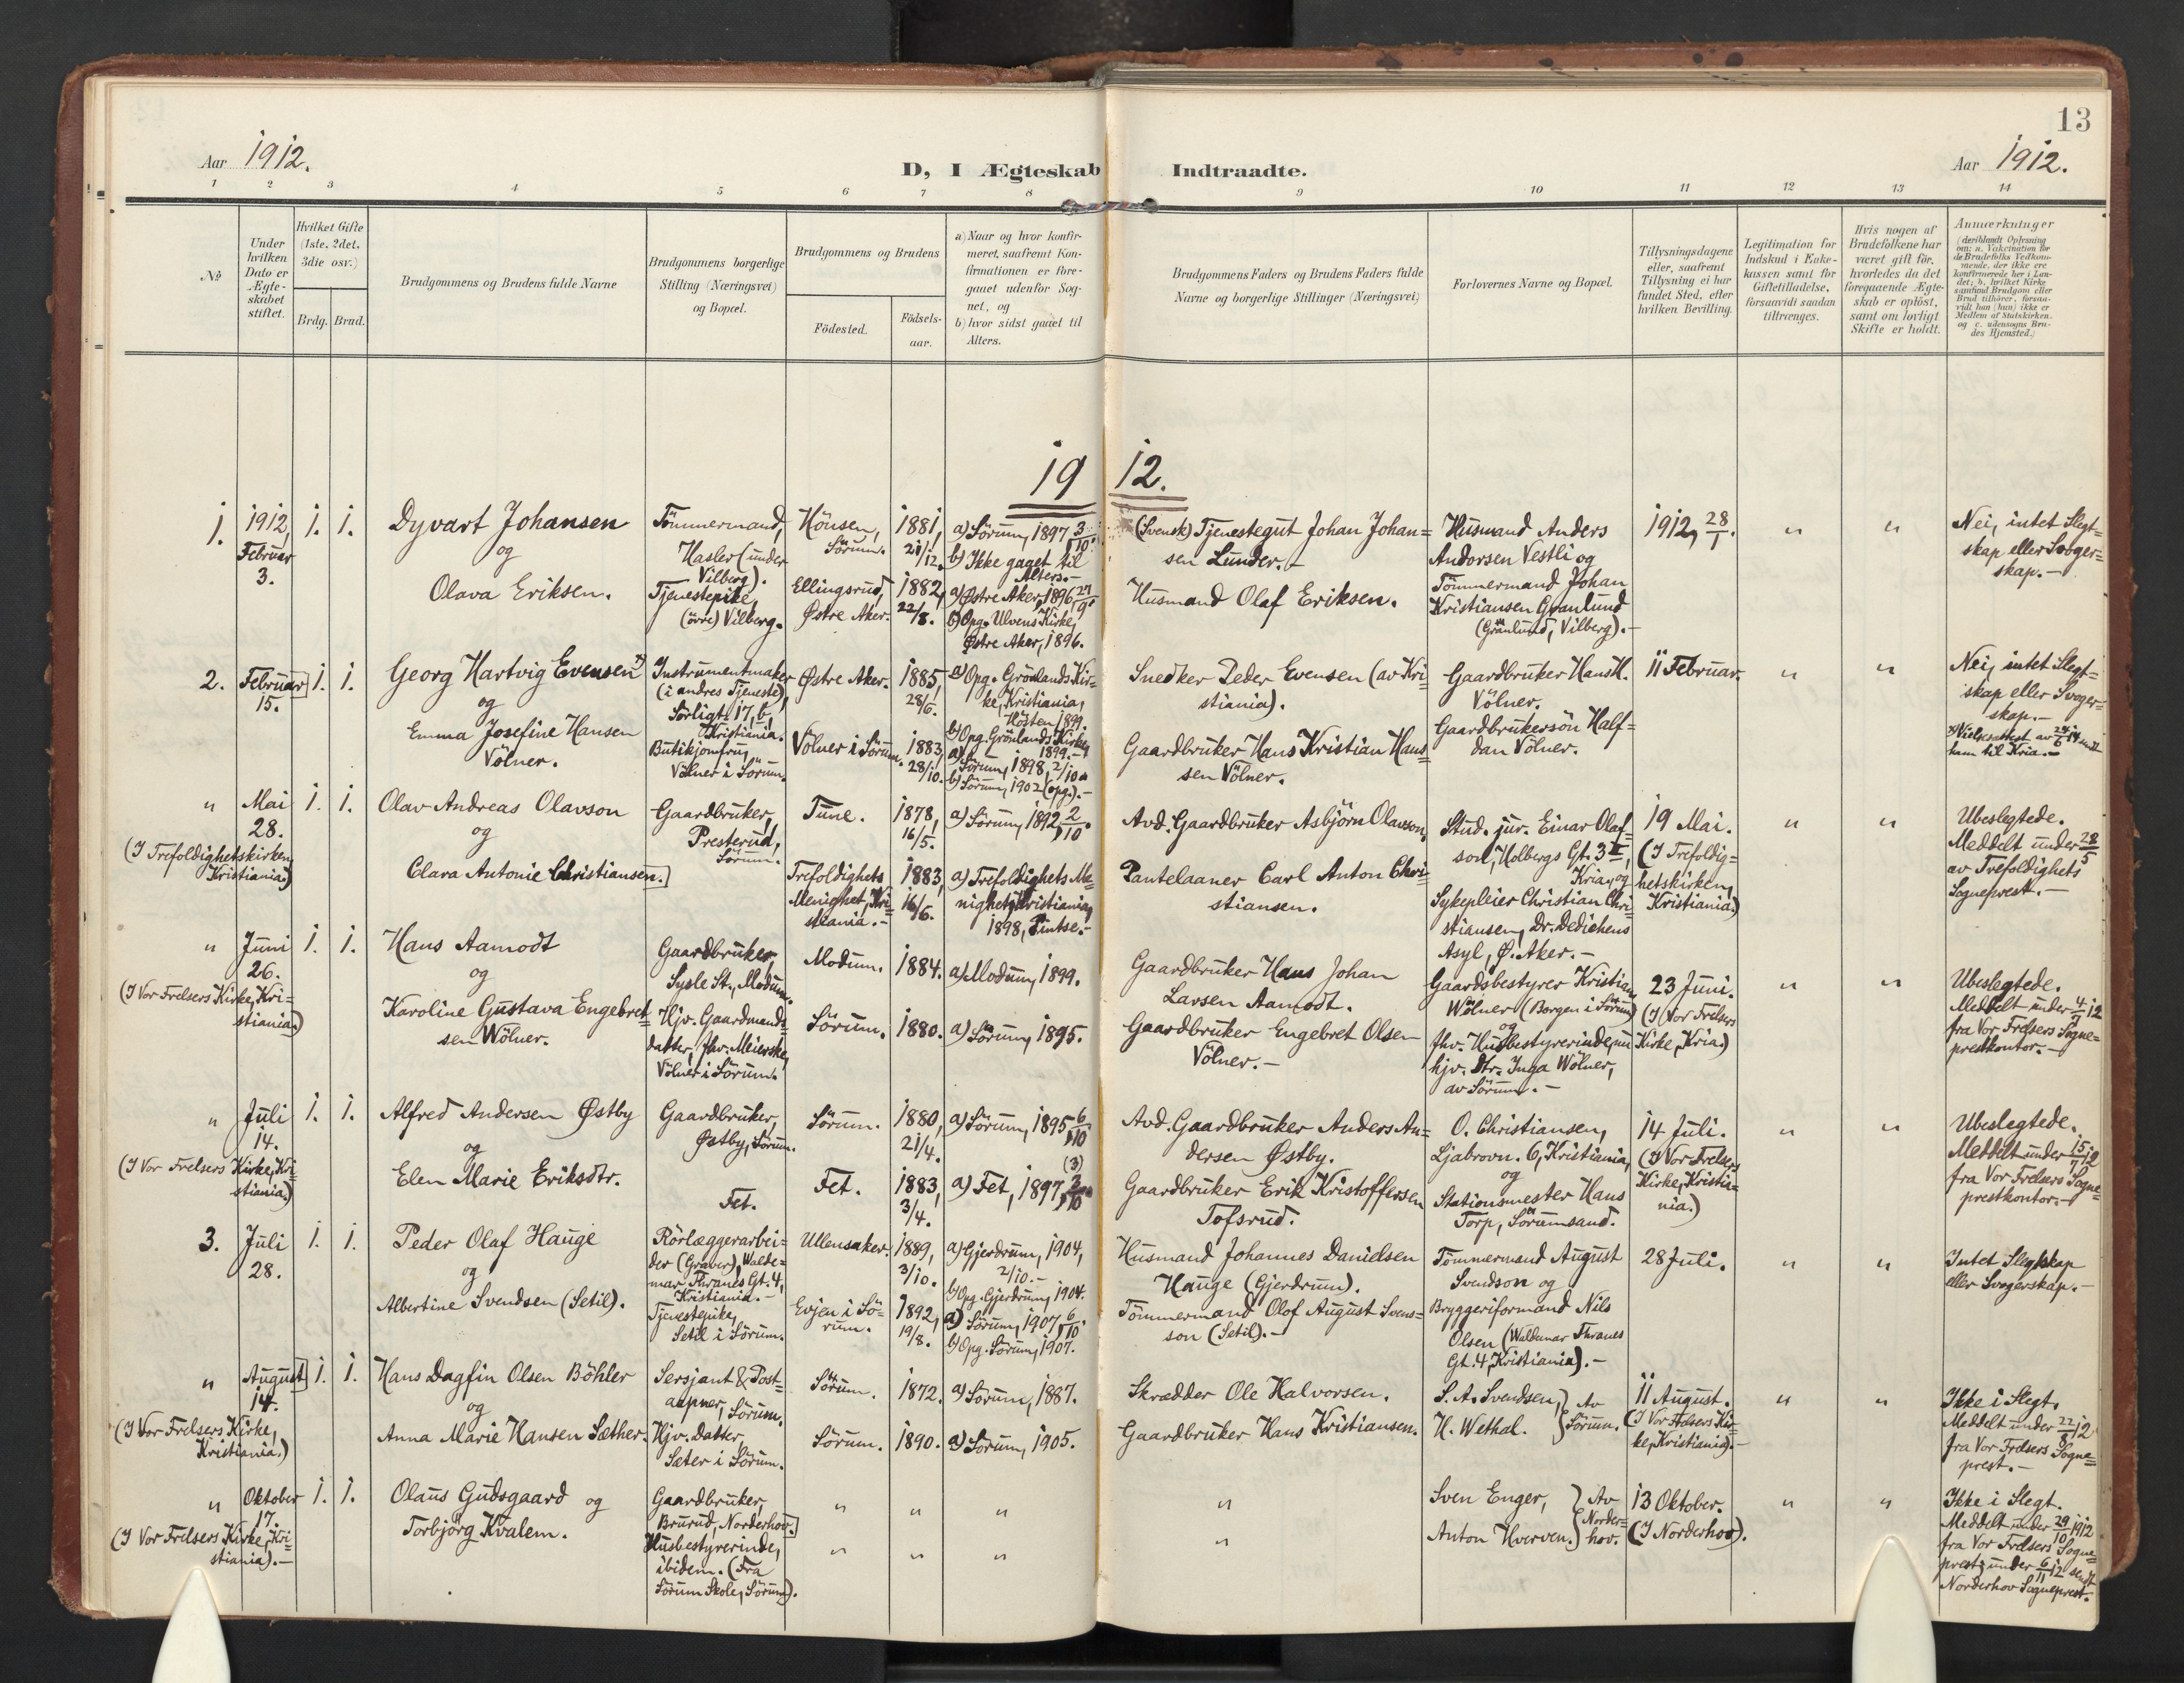 13
Aar 1912.
D, I Ægteskab Indtraadte.
Aar 1912.
1 2 3 4 5 6 7 8 9 10 11 12 13 14
No
Under
hvilken
Dato er
Ægte-
skabet
stiftet.
Hvilket Gifte
(1ste, 2det,
3die osv.)
Brdg. Brud.
Brudgommens og Brudens fulde Navne
Brudgommens borgerlige
Stilling (Næringsvei)
og Bopæl.
Brudgommens og Brudens
Födested.
Födsels-
aar.
a) Naar og hvor konfir-
meret, saafremt Kon-
firmationen er fore-
gaaet udenfor Sog-
net, og
b) hvor sidst gaaet til
Alters.
Brudgommens Faders og Brudens Faders fulde
Navne og borgerlige Stillinger (Næringsvei)
Forlovernes Navne og Bopæl.
Tillysningsdagene
eller, saafremt
Tillysning ei har
fundet Sted, efter
hvilken Bevilling.
Legitimation for
Indskud i Enke-
kassen samt for
Giftetilladelse,
forsaavidt saadan
tiltrænges.
Hvis nogen af
Brudefolkene har
været gift för,
hvorledes da det
foregaaende Ægte-
skab er oplöst,
samt om lovligt
Skifte er holdt.
Anmærkninger
(deriblandt Oplysning
om: a. Vakcination for
de Brudefolks Vedkom-
mende, der ikke ere
konfirmerede her i Lan-
det; b. hvilket Kirke-
samfund Brudgom eller
Brud tilhörer, forsaa-
vidt han (hun) ikke er
Medlem af Statskirken.
og c. udensogns Bru-
des Hjemsted.)
1912.
1.
1912,
Februar
3.
1. 1.
Dyvart Johansen
og
Olava Eriksen.
Tömmermand,
Hasler (under
Vilberg).
Tjenestepike,
(övre) Vilberg.
Hönsen,
Sörum.
Ellingsrud,
Østre Aker.
1881,
21/12.
1882,
22/8.
a) Sörum, 1897, 3/10.
b) Ikke gaaet til
Alters.-
a) Østre Aker, 1896, 27/9.
b) Opg. Ulvens Kirke,
Østre Aker, 1896.
(Svensk) Tjenestegut Johan Johan=
sen Lunder.-
Husmand Olaf Eriksen.
Husmand Anders
Andorsen Vestli og
Tömmermand Johan
Kristiansen Granlund
(Granlund, Vilberg).-
1912, 28/1.
" "
Nei, intet Slegt=
skap eller Svoger=
skap.-
2.
Februar
15.
1. 1.
Georg Hartvig Evensen x)
og
Emma Josefine Hansen
Völner.
Instrumentmaker
(i andres Tjeneste),
Sörligt. 17, b,
Kristiania.
Butikjomfru,
Völner i Sörum.
Østre Aker.
Völner i Sörum.
1885,
28/6.
1883,
28/10.
a) Opg. Grönlands Kir=
ke, Kristiania,
Hösten 1899.
b) Opg. Grönlands Kirke,
1899.-
a) Sörum, 1898, 2/10.
b) Sörum, 1902 (opg.).-
Snedker Peder Evensen (av Kri=
stiania).
Gaardbruker Hans Kristian Han=
sen Völner.
Gaardbruker Hans K.
Völner.
Gaardbrukersön Half=
dan Völner.
11 Februar.
" "
Nei, intet Slegt=
skap eller Svoger=
skap.-
x) Vielsesattest av 24/6 14 sendt
ham til Kria.-
"
Mai
28.
(I Trefoldighetskirken,
Kristiania.)
1. 1.
Olav Andreas Olavson
og
Clara Antonie Christiansen.
Gaardbruker,
Presterud,
Sörum.
Tune.
Trefoldighets
Menighet, Kri=
stiania.-
1878,
16/5.
1883,
16/6.
a) Sörum, 1892, 2/10.
a) Trefoldighets Me=
nighet, Kristiania,
1898, Pintse.-
Avd. Gaardbruker Asbjörn Olavson.
Pantelaaner Carl Anton Chri=
stiansen.
Stud. jur. Einar Olaf=
son, Holbergs Gt. 3 II,
Kria, og
Sykepleier Christian Chri=
stiansen, Dr. Dedichens
Asyl, Ø. Aker.-
19 Mai.
(I Trefoldig=
hetskirken,
Kristiania.)
" "
Ubeslegtede.
Meddelt under 28/5
av Trefoldighets
Sogneprest.-
"
Juni
26.
(I Vor Frelsers Kirke, Kri=
stiania.)
1. 1.
Hans Aamodt
og
Karoline Gustava Engebret=
sen Wölner.
Gaardbruker,
Sysle St., Modum.
Hjv. Gaardmands=
datter, fhv. Meierske,
Völner i Sörum.
Modum.
Sörum.
1884.
1880.
a) Modum, 1899.
a) Sörum, 1895.
Gaardbruker Hans Johan
Larsen Aamodt.
Gaardbruker Engebret Olsen
Völner.-
Gaardsbestyrer Kristian
Wölner (Borgen i Sörum)
og
fhv. Husbestyrerinde, nu
hjv. Dtr. Inga Wölner,
av Sörum.-
23 Juni.
(I Vor Frelsers
Kirke, Kria.)
" "
Ubeslegtede.
Meddelt under 4/7 12
fra Vor Frelsers Sogne=
prestkontor.-
"
Juli
14.
(I Vor Frelsers Kirke, Kri=
stiania.)
1. 1.
Alfred Andersen Østby
og
Elen Marie Eriksdtr.
Gaardbruker,
Østby, Sörum.
Fet.
Sörum.
Fet.
1880,
21/4.
1883,
3/4.
a) Sörum, 1895, 6/10.
(3)
a) Fet, 1897, 3/10.
Avd. Gaardbruker Anders An=
dersen Østby.
Gaardbruker Erik Kristoffersen
Tofsrud.
O. Christiansen,
Ljabrovn. 6, Kristiania,
og
Stationsmester Hans
Torp, Sörumsand.
14 Juli.
(I Vor Frelsers
Kirke, Kristia=
nia.)
" "
Ubeslegtede.
Meddelt under 15/7 12
fra Vor Frelsers Sogne=
prestkontor.-
3.
Juli
28.
1. 1.
Peder Olaf Hauge
og
Albertine Svendsen (Setil).
Rörlæggerarbei=
der (Graver), Walde=
mar Thranes Gt. 4,
Kristiania.-
Tjenestepike,
Setil i Sörum.
Ullensaker.
Evjen i Sö=
rum.
1889,
3/10.
1892,
19/8.
a) Gjerdrum, 1904,
2/10.-
b) Opg. Gjerdrum, 1904.
a) Sörum, 1907, 6/10.
b) Opg. Sörum, 1907.
Husmand Johannes Danielsen
Hauge (Gjerdrum).
Tömmermand Olof August Svens=
son (Setil).-
Tömmermand August
Svendson og
Bryggeriformand Nils
Olsen (Waldemar Thranes
Gt. 4, Kristiania).-
28 Juli.
" "
Intet Slegtskap
eller Svogerskap.-
"
August
14.
(I Vor Frelsers Kirke,
Kristiania.)
1. 1.
Hans Dagfin Olsen Böhler
og
Anna Marie Hansen Sæther.
Sersjant & Post=
aapner, Sörum.
Hjv. Datter,
Sæter i Sörum.
Sörum.
Sörum.
1872.
1890.
a) Sörum, 1887.
a) Sörum, 1905.
Skrædder Ole Halvorsen.
Gaardbruker Hans Kristiansen.
S. A. Svendsen,
H. Wethal.
Av
Sörum.
11 August.
(I Vor Frelsers Kir=
ke, Kristiania).-
" "
Ikke i Slegt.
Meddelt under 22/8 12
fra Vor Frelsers Sogne=
prest.-
"
Oktober
17.
(I Vor Frelsers Kirke, Kri=
stiania).-
1. 1.
Olaus Gudsgaard og
Torbjörg Kvalem.
Gaardbruker,
Brurud, Norderhov.
Husbestyrerinde,
ibidem. (Fra
Sörum Skole, Sörum).
" " "
" " "
"
"
Sven Enger,
Anton Hverven.
Av
Norder=
hov.
13 Oktober.
(I Norderhov).
" "
Ikke i Slegt.
Meddelt under 29/10 1912
fra Vor Frelsers Sogne=
prest; under 6/11 12 sendt
Norderhov Sogneprest.